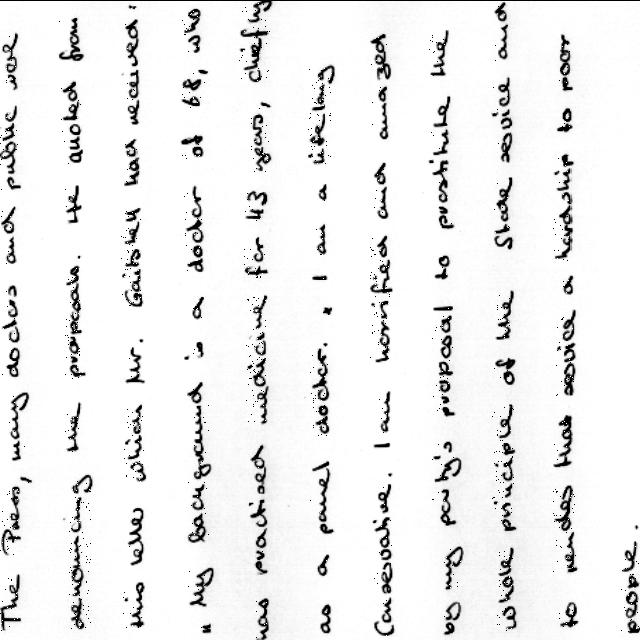 The Press, many doctors and public were
denouncing the proposals. He quoted from
this letter which Mr. Gaitskell had received:
" My background is a doctor of 68, who
has practised medicine for 43 years, chiefly
as a panel doctor. " I am a lifelong
Conservative. I am horrified and amazed
by my party's proposal to prostitute the
whole principle of the State service and
to render that service a hardship to poor
people.